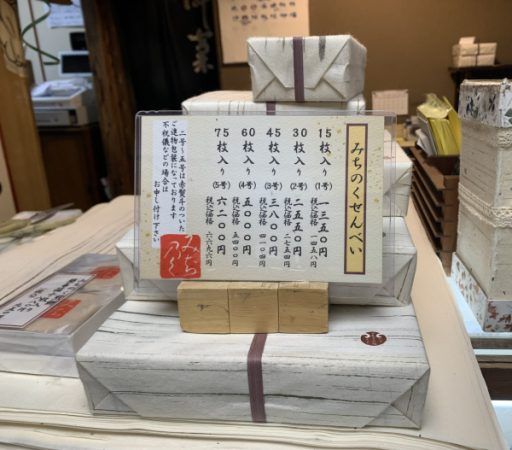 みちのくせんべい
15枚入り(1号) 一三五〇円
税込価格 一四五八円
30枚入り(2号) 二五五〇円
税込価格 二七五四円
45枚入り(3号) 三八〇〇円
税込価格 四一〇四円
60枚入り(4号) 五〇〇〇円
税込価格 五四〇〇円
75枚入り(5号) 六二〇〇円
税込価格 六六九六円
二号〜五号は赤熨斗のついた
ご進物包装になっております
不祝儀などの場合は
お申し付け下さい
みち
のく